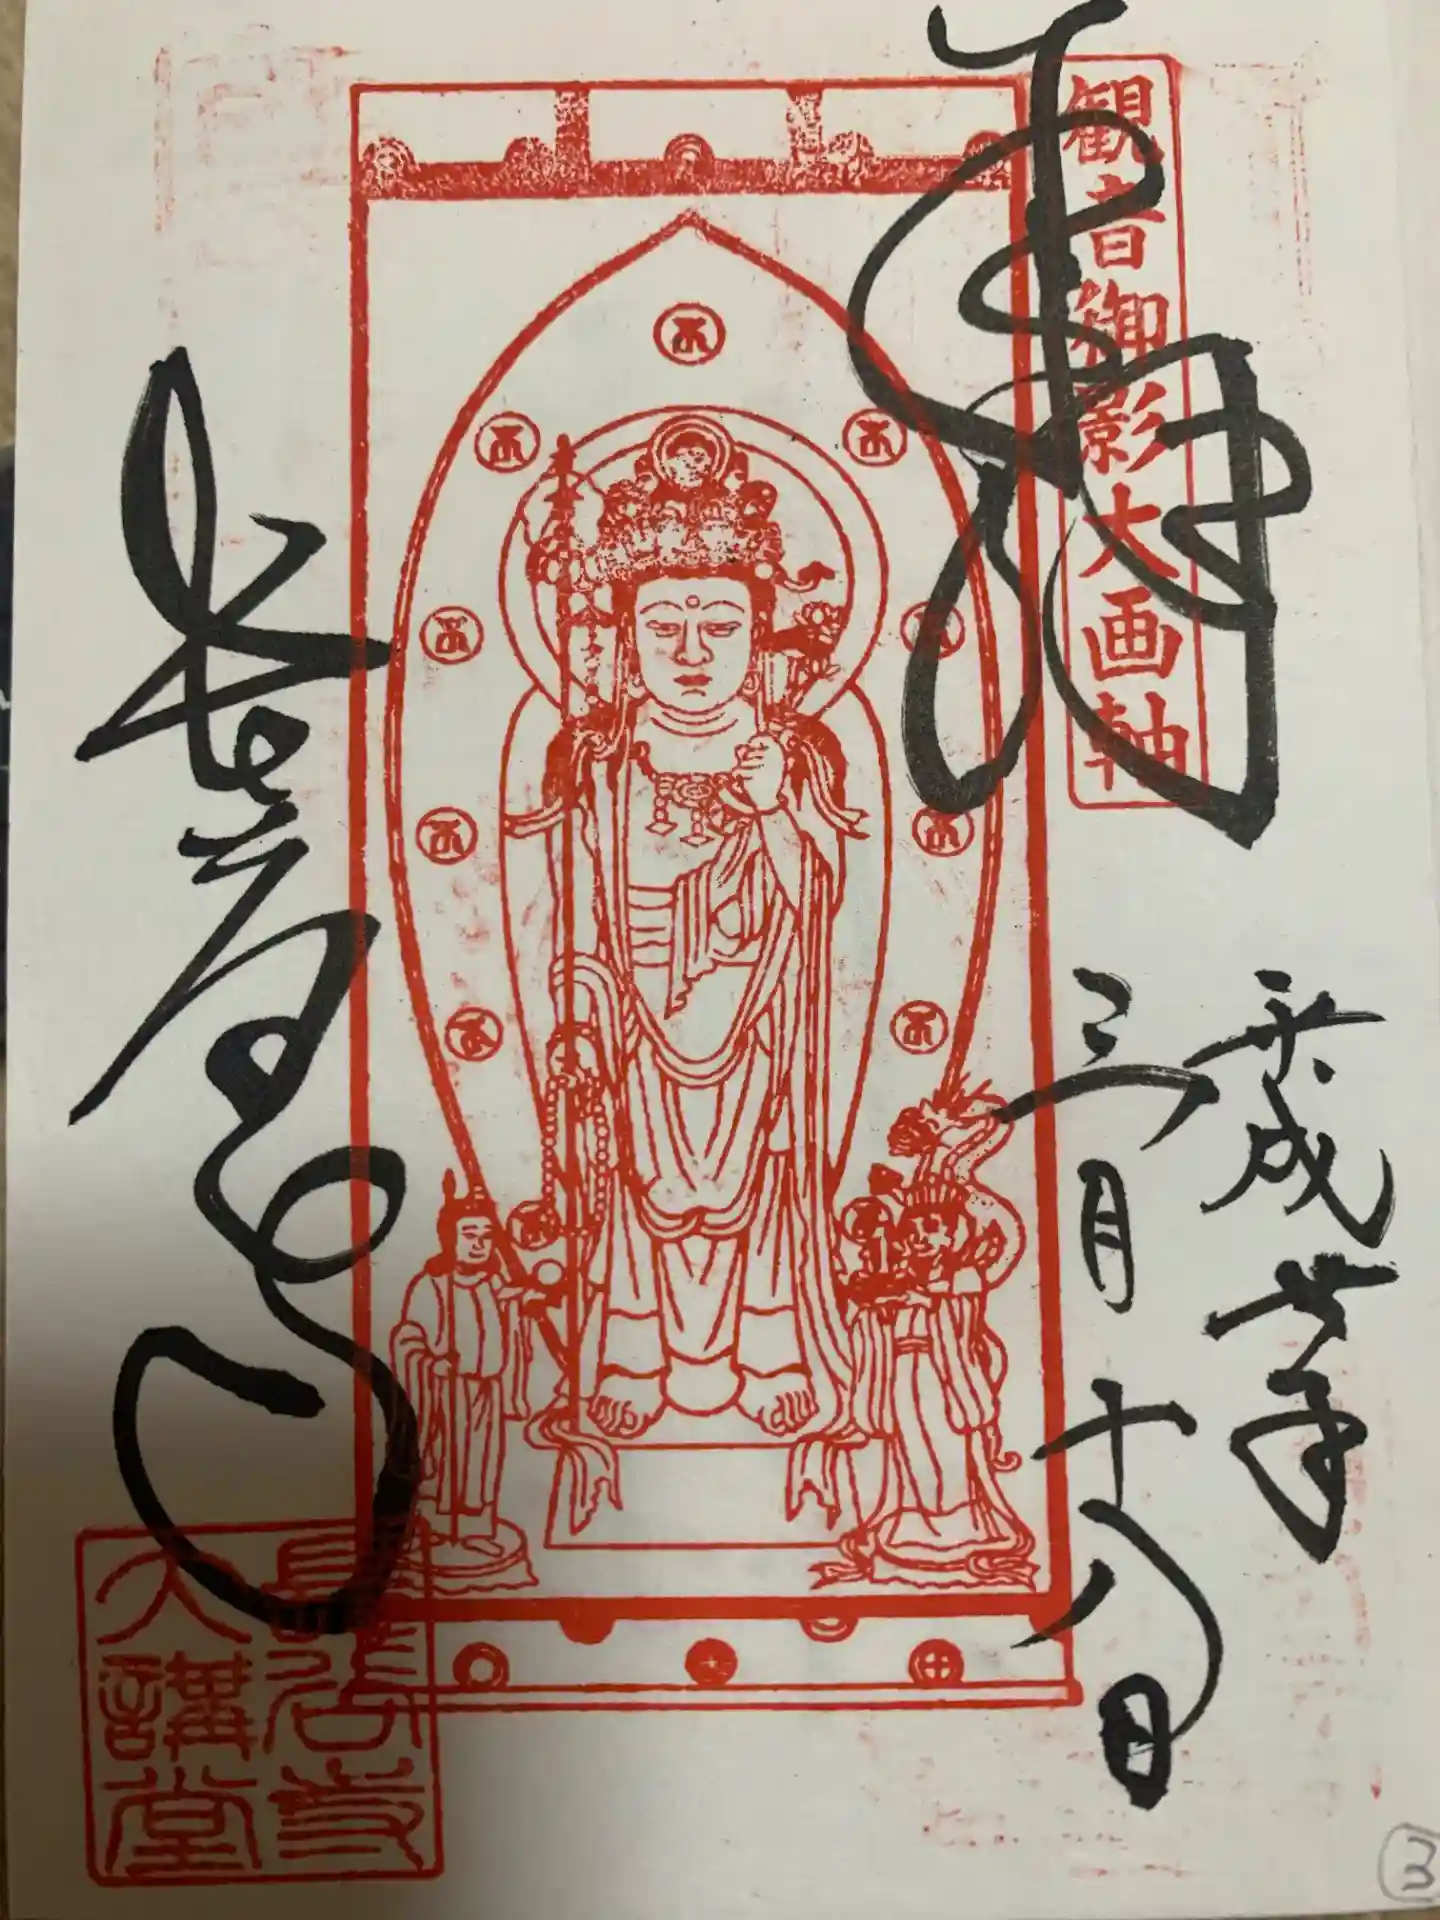 奉拝
観音御影大画軸
平成卅年
三月十八日
長谷寺
長谷寺
大講堂
3